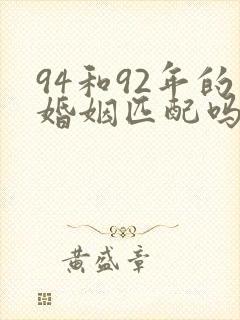 94和92年的
婚姻匹配吗
黄盛章